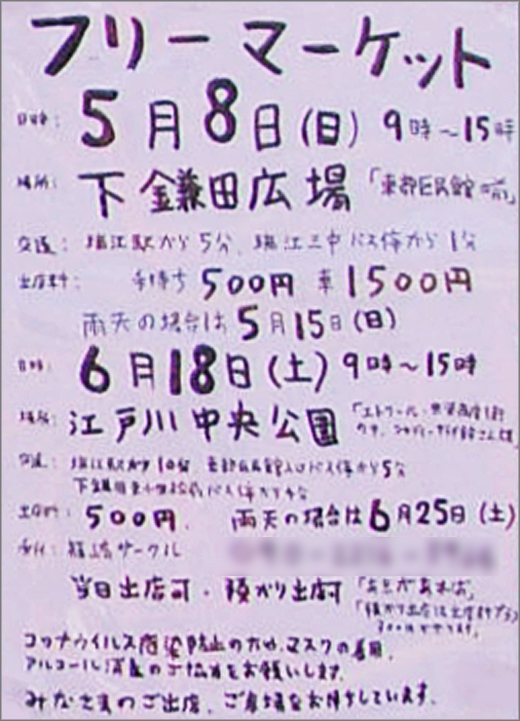 フリーマーケット
日時: 5月8日(日) 9時～15時
場所: 下鎌田広場 「東部区民館の前」
交通: 瑞江駅から5分、瑞江三中バス停から1分
出店料: 手持ち 500円 車 1500円
雨天の場合は 5月15日(日)
日時: 6月18日(土) 9時～15時
場所: 江戸川中央公園
交通: 瑞江駅から10分 東部区民館入口バス停から5分
バス停から
出店料: 500円. 雨天の場合は6月25日(土)
サークル
当日出店可・預かり出店可
コロナウイルス感染防止のため、マスクの着用、
アルコール消毒のご協力をお願いします。
みなさまのご出店、ご来場をお待ちしています。